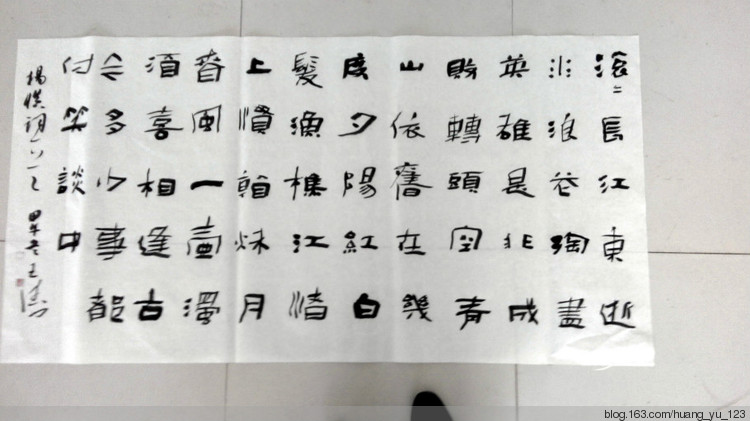 滾〻長江東逝
水浪花淘盡
英雄是非成
敗轉頭空青
山依舊在幾
度夕陽紅白
髮漁樵江渚
上慣看秋月
春風一壺濁
酒喜相逢古
今多少事都
付笑談中
楊慎詞 甲午冬王濤
blog.163.com/huang_yu_123